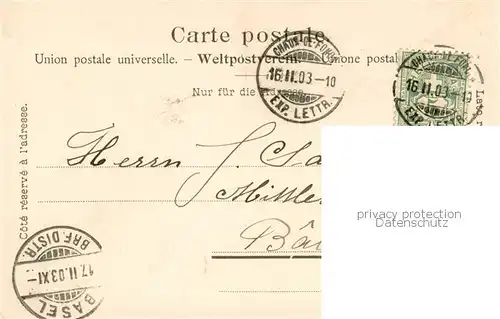 Carte postale.
Union postale universelle. – Weltpostverein. – Unione postale
Nur für die Adresse.
Côté réservé à l'adresse.
Lato r
CHAUX-DE-FONDS
16.II.03–10
EXP. LETTR.
CHAUX-DE-FONDS
16.II.03–10
EXP. LETTR.
Herrn J. Sa
Mittle
Bâ
privacy protection
Datenschutz
BRF. DISTR.
17.II.03.XI–
BASEL